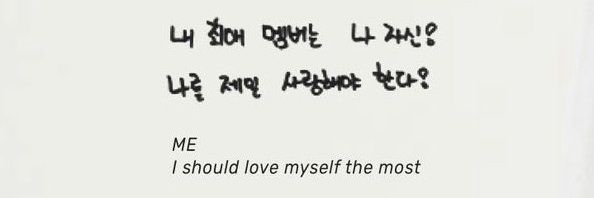 내 최애 멤버는 나 자신?
나를 제일 사랑해야 한다?
ME
I should love myself the most